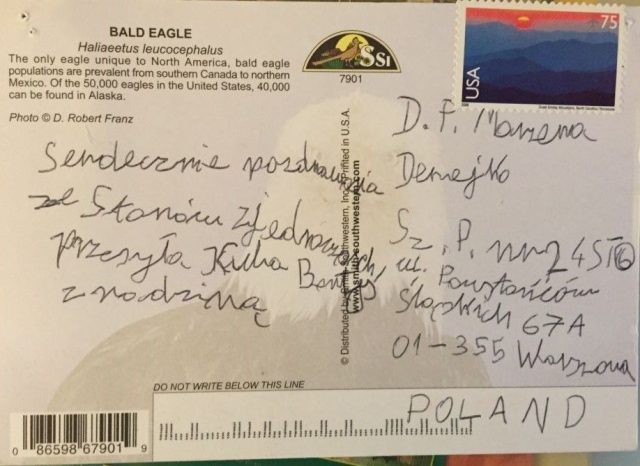 BALD EAGLE
Haliaeetus leucocephalus
The only eagle unique to North America, bald eagle
populations are prevalent from southern Canada to northern
Mexico. Of the 50,000 eagles in the United States, 40,000
can be found in Alaska.
Photo © D. Robert Franz
SSI
7901
75
USA
Serdecznie pozdrowienia
ze Stanów Zjednoczonych
przesyła Kuba
z rodziną
© Distributed by Smith-Southwestern, Inc. Printed in U.S.A.
www.smith-southwestern.com
D. P. Marzena
Demejko
Sz. P. nr 245
ul. Powstańców
Śląskich 67A
01-355 Warszawa
POLAND
DO NOT WRITE BELOW THIS LINE
0 86598 67901 9